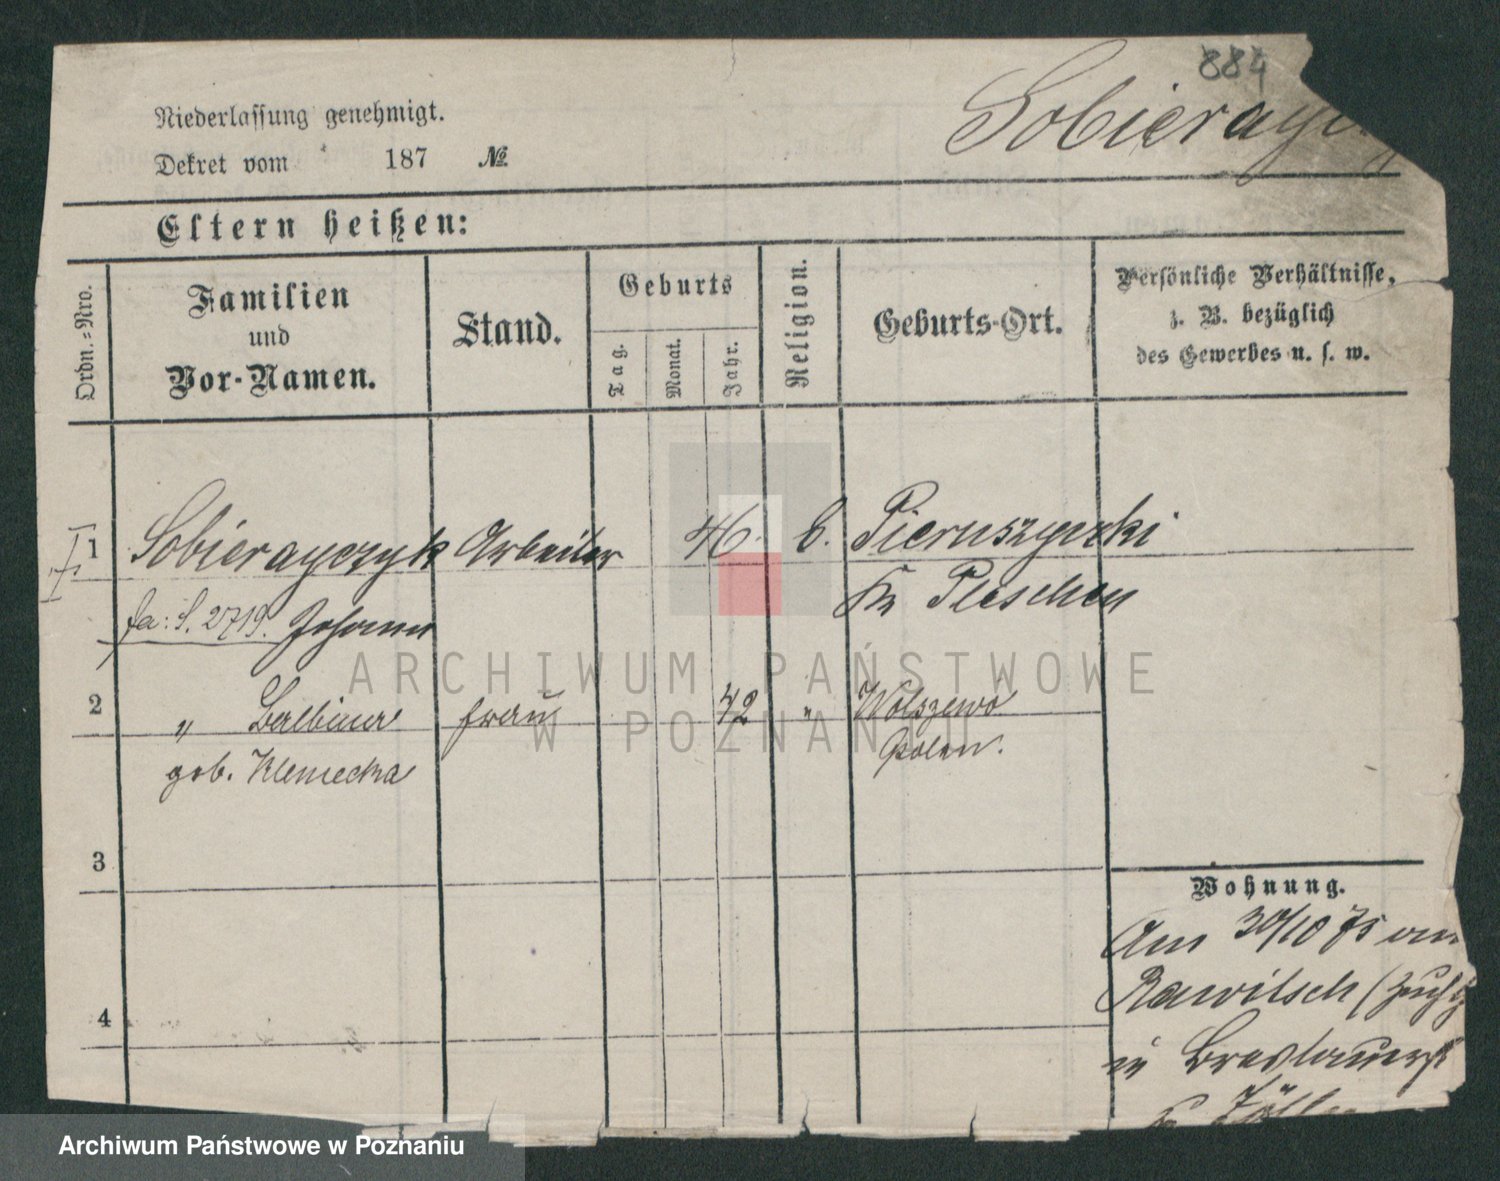 884
Niederlassung genehmigt.
Dekret vom 187 №
Eltern heißen:
Ordn.-Nro.
Familien
und
Vor-Namen.
Stand.
Geburts
Tag.
Monat.
Jahr.
Religion.
Geburts-Ort.
Persönliche Verhältnisse,
z. B. bezüglich
des Gewerbes u. s. w.
1 Sobierayczyk Arbeiter 46. Pieruszycki
fa: S. 2719. Johann Kr Pleschen
2 " Balbina Frau 42 " Wolszewo
geb. Klemecka Polen.
3
4
Wohnung.
Am 30/10 75
Rawitsch
in Breslauerst
ARCHIWUM PAŃSTWOWE
W POZNANIU
Archiwum Państwowe w Poznaniu